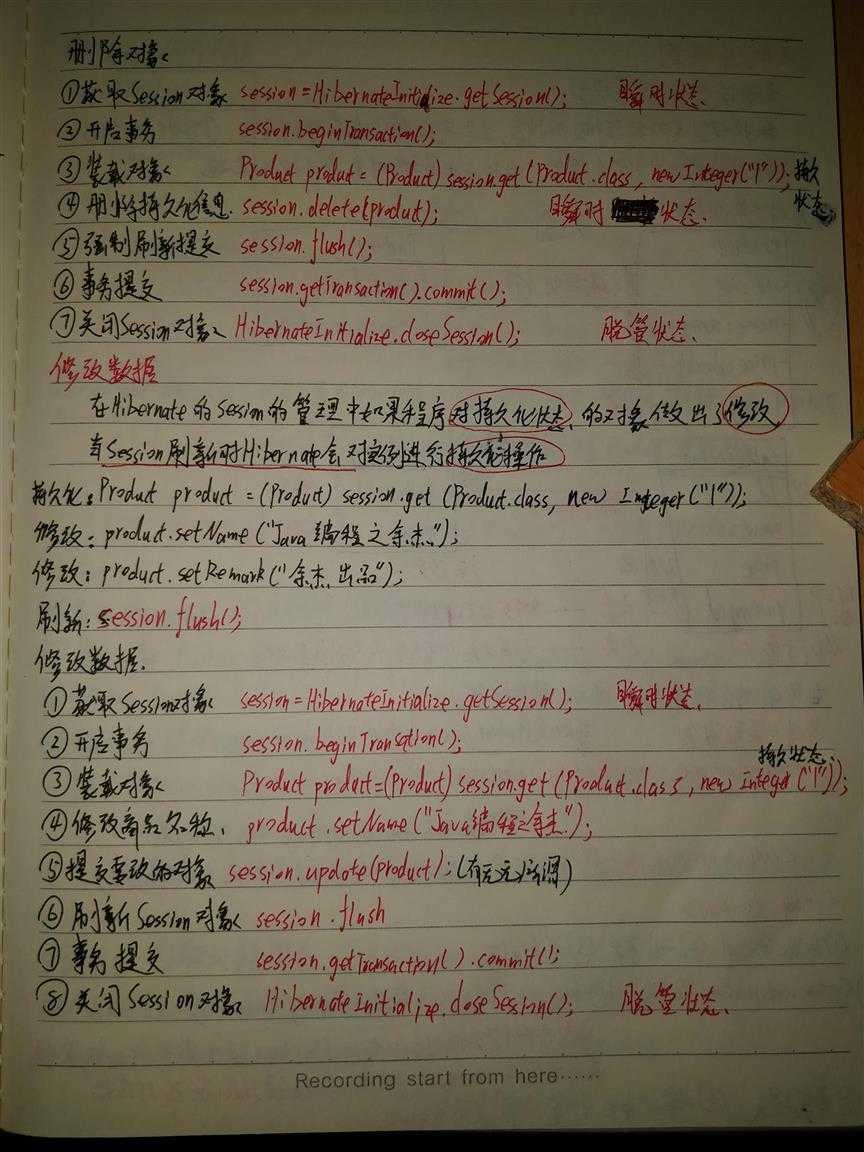 删除对象
①获取Session对象 session=HibernateInitialize.getSession(); 瞬时状态
②开启事务 session.beginTransaction();
③装载对象 Product product = (Product) session.get(Product.class, new Integer("1")); 持久状态
④删除持久化信息. session.delete(product); 瞬时状态.
⑤强制刷新提交 session.flush();
⑥事务提交 session.getTransaction().commit();
⑦关闭Session对象 HibernateInitialize.closeSession(); 脱管状态.
修改数据
在Hibernate的Session的管理中如果程序对持久化状态的对象做出了修改
当Session刷新时Hibernate会对实例进行持久化操作
持久化: Product product = (Product) session.get (Product.class, new Integer("1"));
修改: product.setName("Java编程之余杰");
修改: product.setRemark("余杰出品");
刷新: session.flush();
修改数据.
①获取Session对象 session=HibernateInitialize.getSession(); 瞬时状态.
②开启事务 session.beginTransation();
③装载对象 Product product=(Product) session.get (Product.class, new Integer ("1")); 持久状态.
④修改商品名称. product.setName("Java编程之余杰");
⑤提交要改的对象 session.update(product); (有无无所谓)
⑥刷新Session对象 session.flush
⑦事务提交 session.getTransaction().commit();
⑧关闭Session对象 HibernateInitialize.closeSession(); 脱管状态.
Recording start from here······